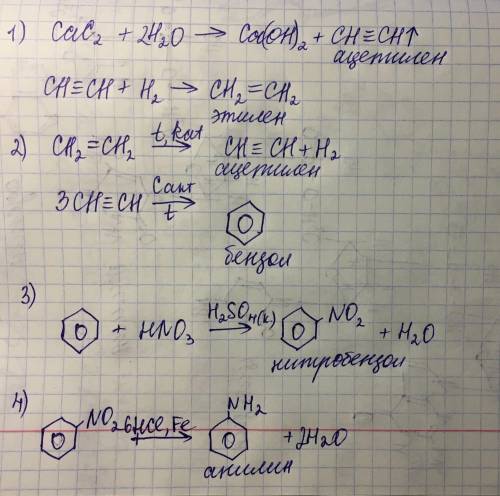 1) CaC₂ + 2H₂O → Ca(OH)₂ + CH≡CH↑
ацетилен
CH≡CH + H₂ → CH₂=CH₂
этилен
2) CH₂=CH₂ t, kat → CH≡CH + H₂
ацетилен
3CH≡CH Cакт → t
бензол
3) + HNO₃ H₂SO₄(к) → NO₂ + H₂O
нитробензол
4) NO₂ 6HCl, Fe → NH₂ + 2H₂O
анилин